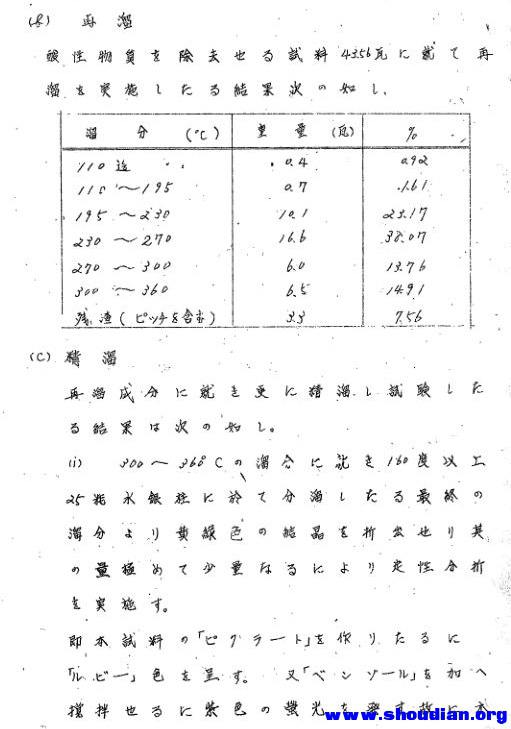 (b) 再溜
酸性物質を除去せる試料 43.56瓦に就て再
溜を実施したる結果次の如し.
溜分 (℃) 重量 (瓦) %
110 迄 0.4 0.92
110 ～195 0.7 1.61
195 ～230 10.1 23.17
230 ～270 16.6 38.07
270 ～300 6.0 13.76
300 ～360 6.5 14.91
残渣(ピッチを含む) 3.3 7.56
(C) 精溜
再溜成分に就き更に精溜し試験した
る結果は次の如し。
(i) 300～360℃の溜分に就き180度以上
25粍水銀柱に於て分溜したる最終の
溜分より黄緑色の結晶を析出せり其
の量極めて少量なるにより定性分析
を実施す。
即本試料の「ピクラート」を作りたるに
「ルビー」色を呈す。又「ベンゾール」を加へ
攪拌せるに紫色の螢光を発す故に本
www.shoudian.org